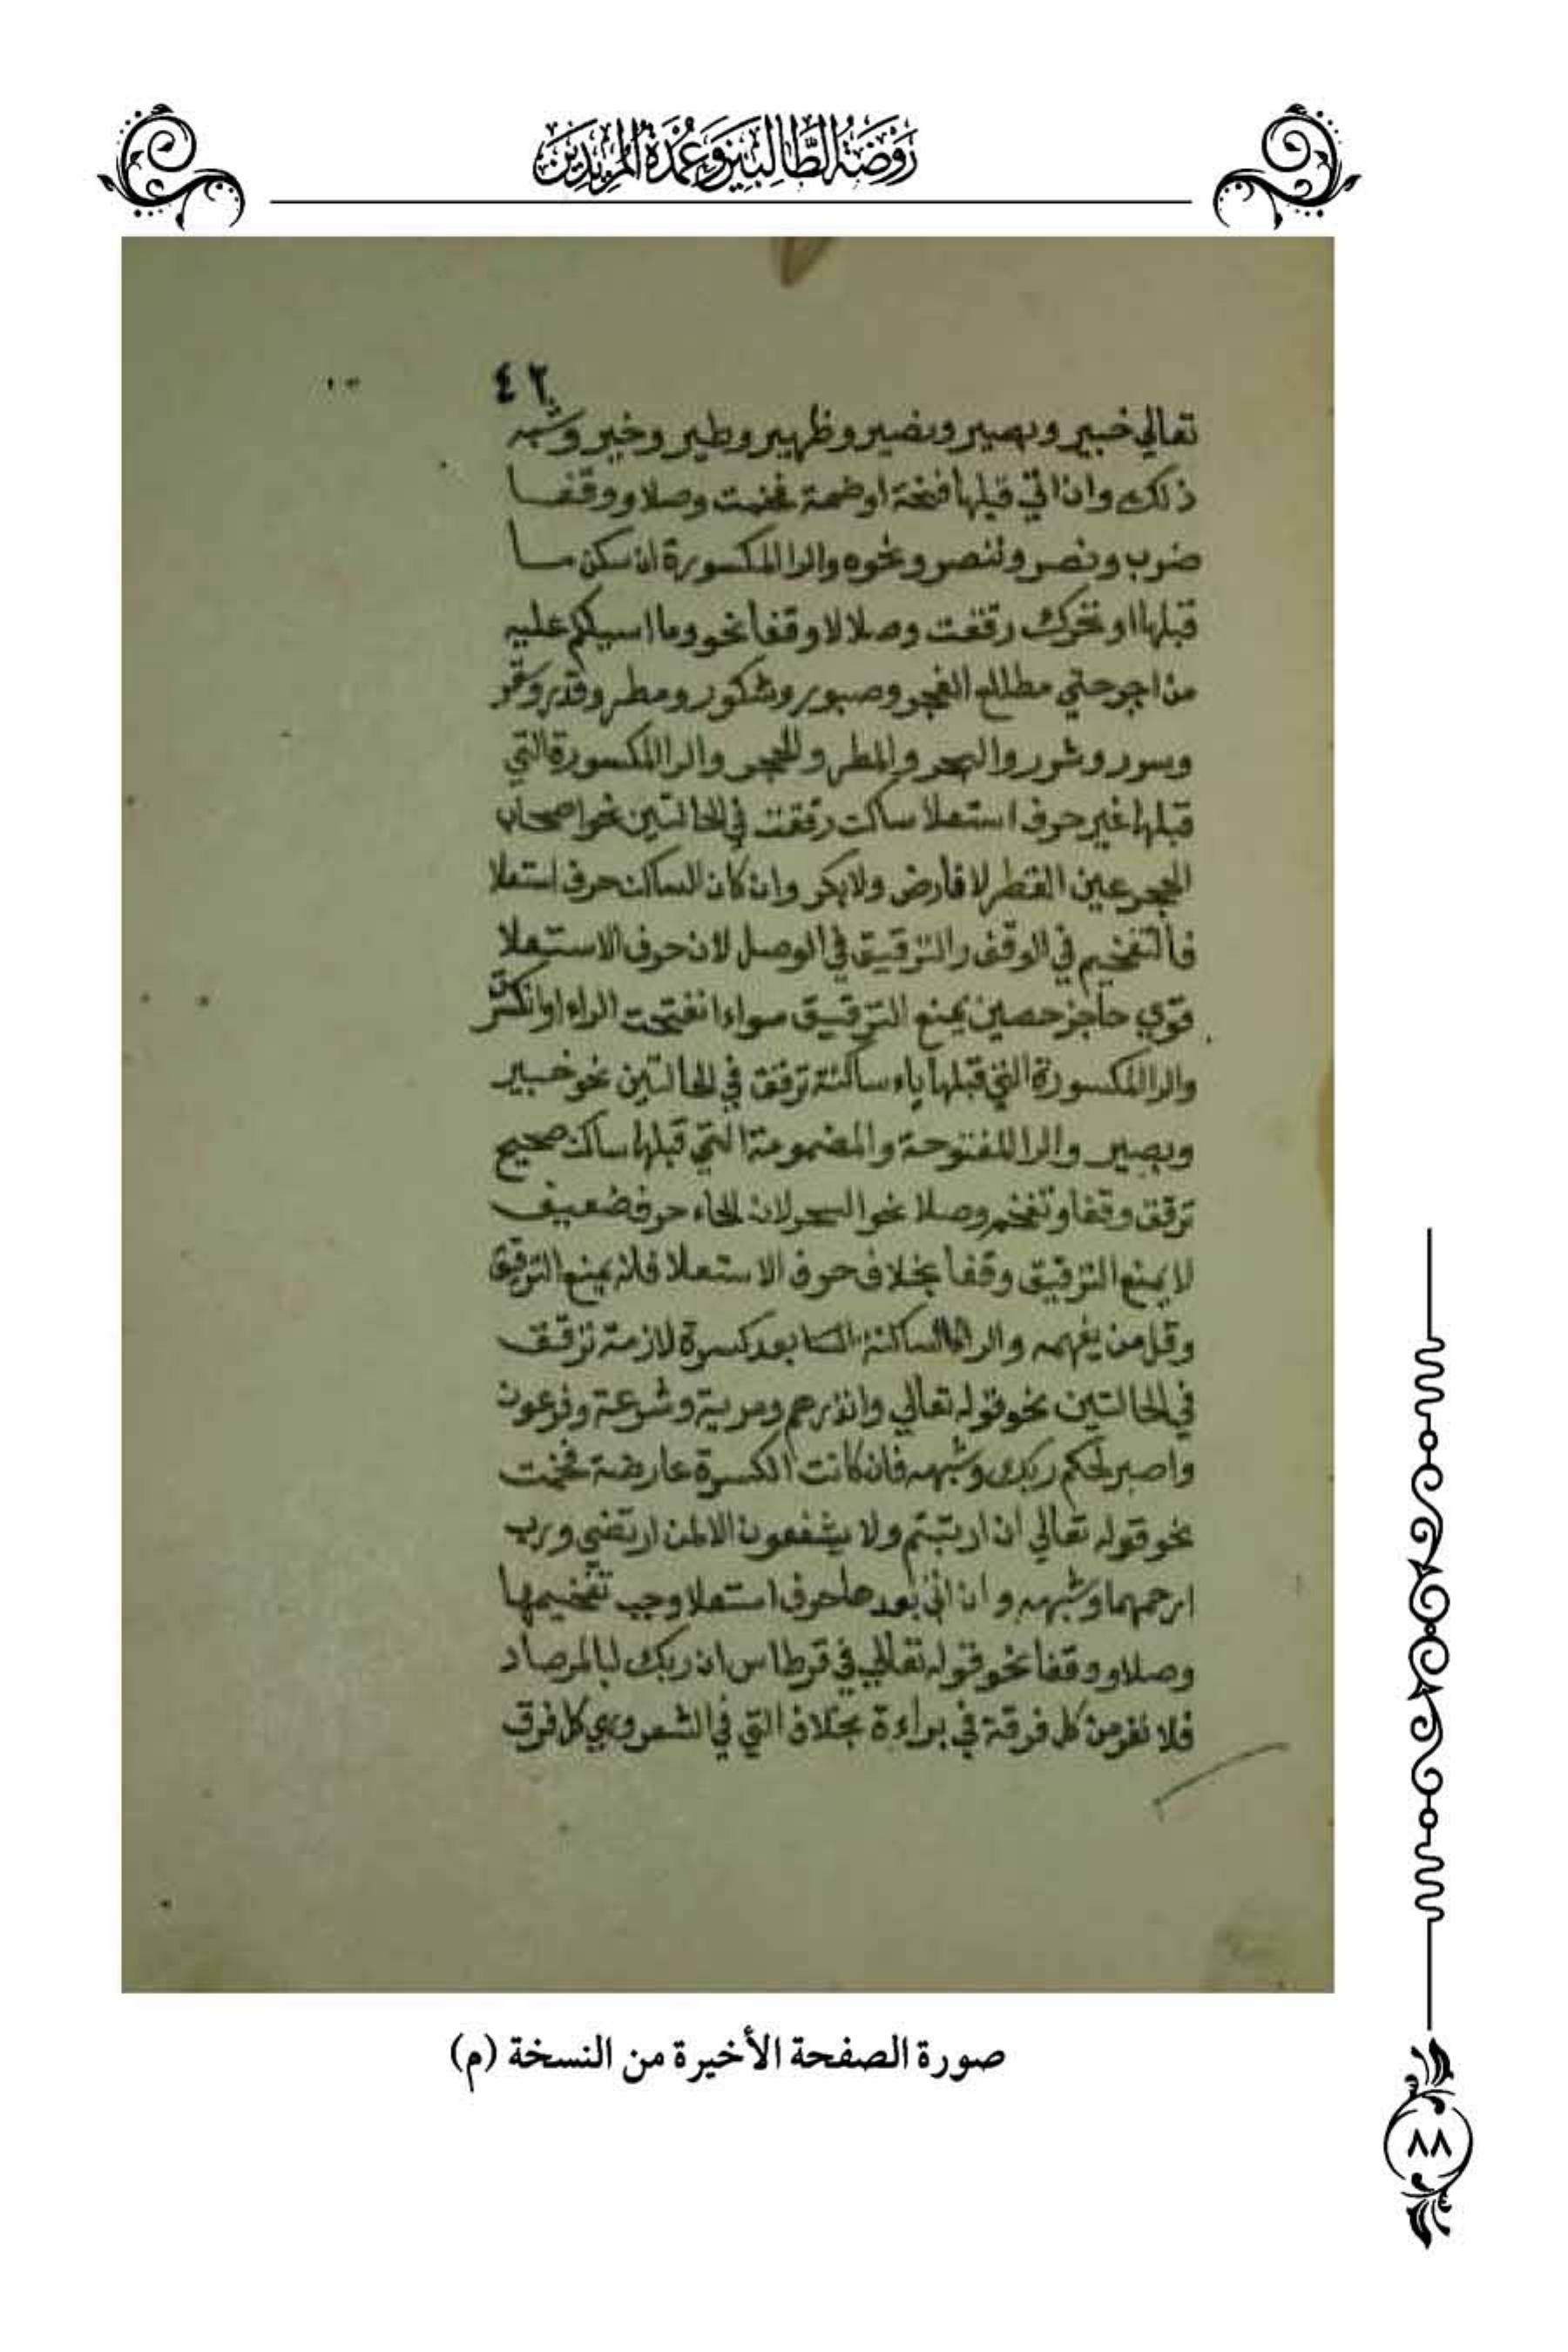 رَوْضَةُ الطَّالِبِينَ وَعُمْدَةُ الْمُرِيدِينَ
٤٢
تعالي خبير وبصير ونصير وظهير وطير وخير وشبه
ذلك وان اتي قبلها فتحة او ضمة فخمت وصلا ووقفا
ضرب ونصر وننصر ونحوه والرا المكسورة ان سكن ما
قبلها او تحرك رققت وصلا لا وقفا نحو وما اسيلكم عليه
من اجر حتي مطلع الفجر وصبور وشكور ومطر وقدر
وسرر وشرر والبحر والمطر والحجر والرا المكسورة التي
قبلها غير حرف استعلا ساكن رققت في الحالتين نحو اصحاب
الحجر عين القطر لا فارض ولا بكر وان كان الساكن حرف استعلا
فالتفخيم في الوقف والترقيق في الوصل لان حرف الاستعلا
قوي حاجز حصين يمنع الترقيق سواء انفتحت الراء او انكسرت
والرا المكسورة التي قبلها ياء ساكنة ترقق في الحالتين نحو خبير
وبصير والرا المفتوحة والمضمومة التي قبلها ساكن صحيح
ترقق وقفا وتفخم وصلا نحو السحر لان الحاء حرف ضعيف
لا يمنع الترقيق وقفا بخلاف حرف الاستعلا فانه يمنع الترقيق
وقل من يفهمه والرا الساكنة بعد كسرة لازمة ترقق
في الحالتين نحو قوله تعالي وانذرهم ومرية وشرعة وفرعون
واصبر لحكم ربك وشبهه فان كانت الكسرة عارضة فخمت
نحو قوله تعالي ان ارتبتم ولا يشفعون الا لمن ارتضي ورب
ارحمهما وشبهه وان اتي بعدها حرف استعلا وجب تفخيمها
وصلا ووقفا نحو قوله تعالي في قرطاس ان ربك لبالمرصاد
فلا نفر من كل فرقة في براءة بخلاف التي في الشعر وهي كل فرق
صورة الصفحة الأخيرة من النسخة (م)
٨٨